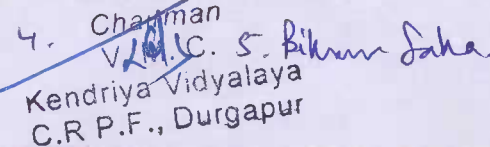 4. Chairman
V.M.C. 5. Bikram Saha
Kendriya Vidyalaya
C.R P.F., Durgapur